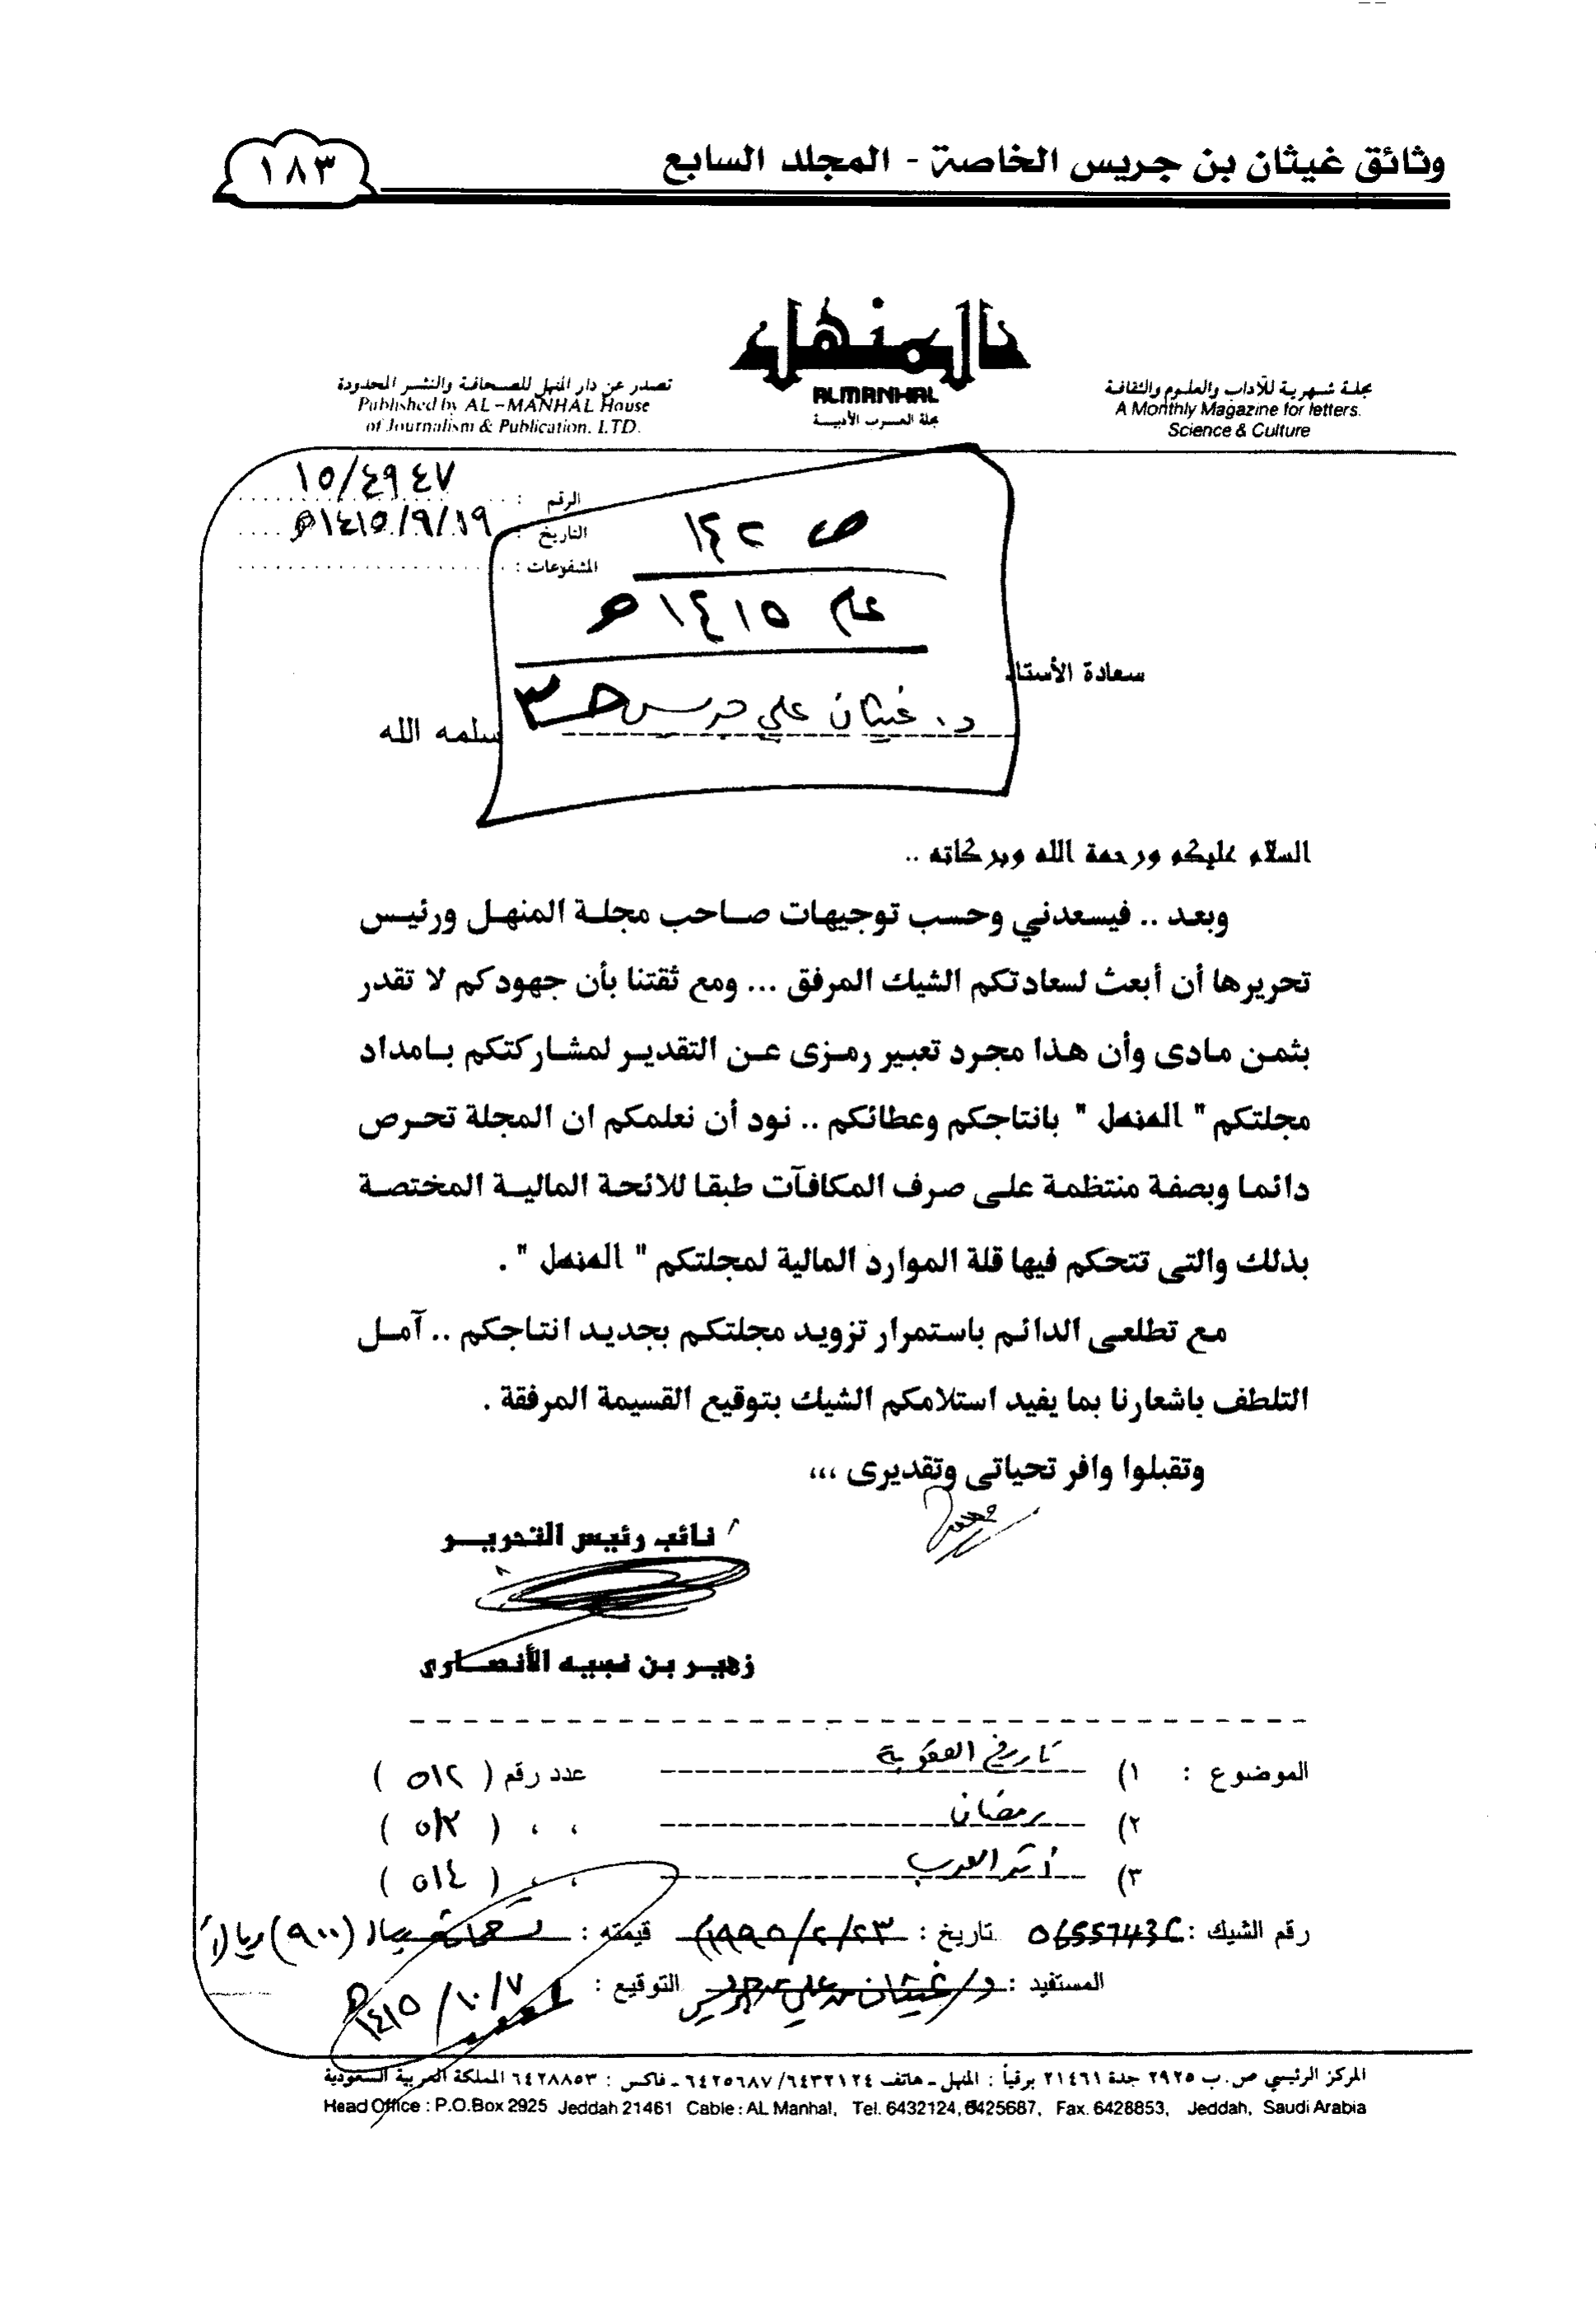 وثائق غيثان بن جريس الخاصة - المجلد السابع
١٨٣
المنهل
ALMANHAL
مجلة العرب الأدبية
مجلة شهرية للآداب والعلوم والثقافة
A Monthly Magazine for letters.
Science & Culture
تصدر عن دار المنهل للصحافة والنشر المحدودة
Published by AL-MANHAL House
of Journalism & Publication. LTD.
الرقم : ١٥/٤٩٤٧
التاريخ : ١٤١٥/٩/١٩هـ
المشفوعات :
ص ١٤٢
عام ١٤١٥هـ
سعادة الأستاذ
د. غيثان علي جريس
سلمه الله
السلام عليكم ورحمة الله وبركاته ..
وبعد .. فيسعدني وحسب توجيهات صاحب مجلة المنهل ورئيس
تحريرها أن أبعث لسعادتكم الشيك المرفق ... ومع ثقتنا بأن جهودكم لا تقدر
بثمن مادى وأن هذا مجرد تعبير رمزى عن التقدير لمشاركتكم بامداد
مجلتكم " المنهل " بانتاجكم وعطائكم .. نود أن نعلمكم ان المجلة تحرص
دائما وبصفة منتظمة على صرف المكافآت طبقا للائحة المالية المختصة
بذلك والتى تتحكم فيها قلة الموارد المالية لمجلتكم " المنهل " .
مع تطلعى الدائم باستمرار تزويد مجلتكم بجديد انتاجكم .. آمل
التلطف باشعارنا بما يفيد استلامكم الشيك بتوقيع القسيمة المرفقة .
وتقبلوا وافر تحياتى وتقديرى ،،،
نائب رئيس التحرير
زهير بن نبيه الأنصارى
الموضوع : ١) تاريخ العقوبة عدد رقم ( ٥١٢ )
٢) رمضان ، ، ( )
٣) أثر العرب ، ، ( ٥١٤ )
رقم الشيك : تاريخ : ١٩٩٥/٢/٢٣ قيمته : تسعمائة ريال (٩٠٠) ريالاً
المستفيد : د/ غيثان بن علي جريس التوقيع : ١٤١٥/١٠/٧هـ
المركز الرئيسي ص. ب ٢٩٢٥ جدة ٢١٤٦١ برقياً : المنهل ـ هاتف ٦٤٣٢١٢٤/ ٦٤٢٥٦٨٧ ـ فاكس : ٦٤٢٨٨٥٣ المملكة العربية السعودية
Head Office : P.O.Box 2925 Jeddah 21461 Cable : AL Manhal, Tel. 6432124, 6425687, Fax. 6428853, Jeddah, Saudi Arabia